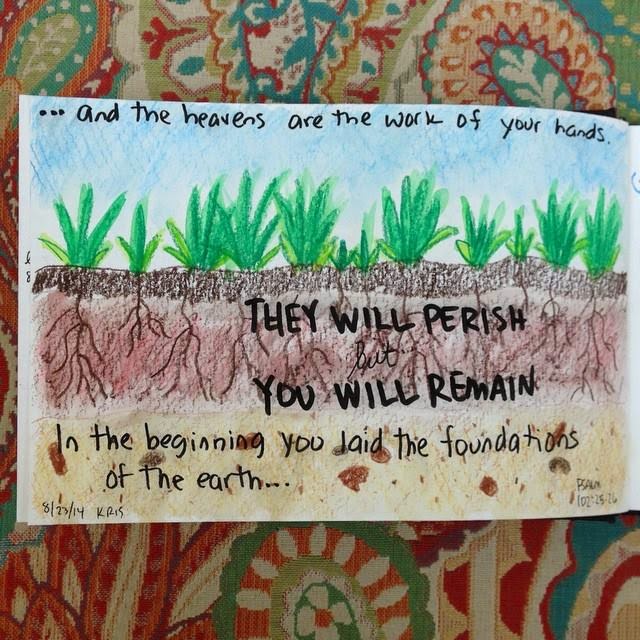 ... and the heavens are the work of your hands.
THEY WILL PERISH
but
YOU WILL REMAIN
In the beginning you laid the foundations
of the earth...
PSALM
102:25-26
8/23/14 KRIS